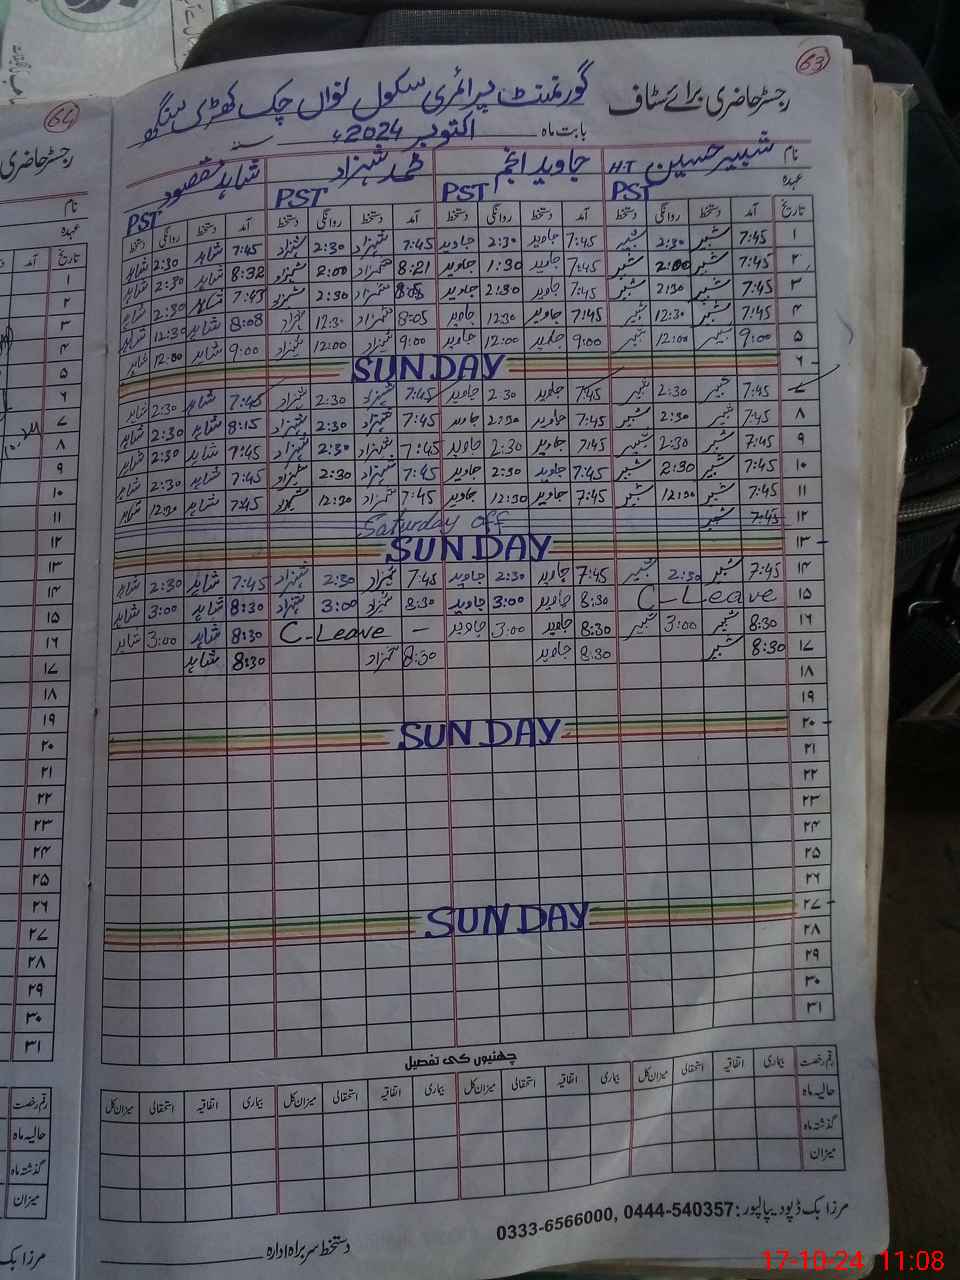 63
رجسٹر حاضری برائے سٹاف
گورنمنٹ پرائمری سکول نواں چک کھڑی سنگھ
بابت ماہ اکتوبر 2024ء سنہ
نام شبیر حسین H.T جاوید انجم محمد شہزاد شاہد مقصود
عہدہ PST PST PST PST
تاریخ آمد دستخط روانگی دستخط آمد دستخط روانگی دستخط آمد دستخط روانگی دستخط آمد دستخط روانگی دستخط
۱ 7:45 شبیر 2:30 شبیر 7:45 جاوید 2:30 جاوید 7:45 شہزاد 2:30 شہزاد 7:45 شاہد 2:30 شاہد
۲ 7:45 شبیر 2:00 شبیر 7:45 جاوید 1:30 جاوید 8:21 شہزاد 2:00 شہزاد 8:32 شاہد 2:30 شاہد
۳ 7:45 شبیر 2:30 شبیر 7:45 جاوید 2:30 جاوید 8:05 شہزاد 2:30 شہزاد 7:43 شاہد 2:30 شاہد
۴ 7:45 شبیر 12:30 شبیر 7:45 جاوید 12:30 جاوید 8:05 شہزاد 12:30 شہزاد 8:08 شاہد 12:30 شاہد
۵ 9:00 شبیر 12:00 شبیر 9:00 جاوید 12:00 جاوید 9:00 شہزاد 12:00 شہزاد 9:00 شاہد 12:00 شاہد
۶ SUNDAY
۷ 7:45 شبیر 2:30 شبیر 7:45 جاوید 2:30 جاوید 7:45 شہزاد 2:30 شہزاد 7:45 شاہد 2:30 شاہد
۸ 7:45 شبیر 2:30 شبیر 7:45 جاوید 2:30 جاوید 7:45 شہزاد 2:30 شہزاد 8:15 شاہد 2:30 شاہد
۹ 7:45 شبیر 2:30 شبیر 7:45 جاوید 2:30 جاوید 7:45 شہزاد 2:30 شہزاد 7:45 شاہد 2:30 شاہد
۱۰ 7:45 شبیر 2:30 شبیر 7:45 جاوید 2:30 جاوید 7:45 شہزاد 2:30 شہزاد 7:45 شاہد 2:30 شاہد
۱۱ 7:45 شبیر 12:30 شبیر 7:45 جاوید 12:30 جاوید 7:45 شہزاد 12:30 شہزاد 7:45 شاہد 12:30 شاہد
۱۲ 7:45 شبیر Saturday off
۱۳ SUNDAY
۱۴ 7:45 شبیر 2:30 شبیر 7:45 جاوید 2:30 جاوید 7:45 شہزاد 2:30 شہزاد 7:45 شاہد 2:30 شاہد
۱۵ C-Leave 8:30 جاوید 3:00 جاوید 8:30 شہزاد 3:00 شہزاد 8:30 شاہد 3:00 شاہد
۱۶ 8:30 شبیر 3:00 شبیر 8:30 جاوید 3:00 جاوید C-Leave – 8:30 شاہد 3:00 شاہد
۱۷ 8:30 شبیر 8:30 جاوید 8:30 شہزاد 8:30 شاہد
۱۸
۱۹
۲۰ SUNDAY
۲۱
۲۲
۲۳
۲۴
۲۵
۲۶
۲۷ SUNDAY
۲۸
۲۹
۳۰
۳۱
چھٹیوں کی تفصیل
رقم رخصت بیماری اتفاقیہ استحقاقی میزان کل بیماری اتفاقیہ استحقاقی میزان کل بیماری اتفاقیہ استحقاقی میزان کل بیماری اتفاقیہ استحقاقی میزان کل
حالیہ ماہ
گذشتہ ماہ
میزان
مرزا بک ڈپو دیپالپور: 0444-540357 ,0333-6566000
دستخط سربراہ ادارہ
64
رجسٹر حاضری
نام
عہدہ
تاریخ آمد
۱
۲
۳
۴
۵
۶
۷
۸
۹
۱۰
۱۱
۱۲
۱۳
۱۴
۱۵
۱۶
۱۷
۱۸
۱۹
۲۰
۲۱
۲۲
۲۳
۲۴
۲۵
۲۶
۲۷
۲۸
۲۹
۳۰
۳۱
رقم رخصت
حالیہ ماہ
گذشتہ ماہ
میزان
مرزا بک
17-10-24 11:08